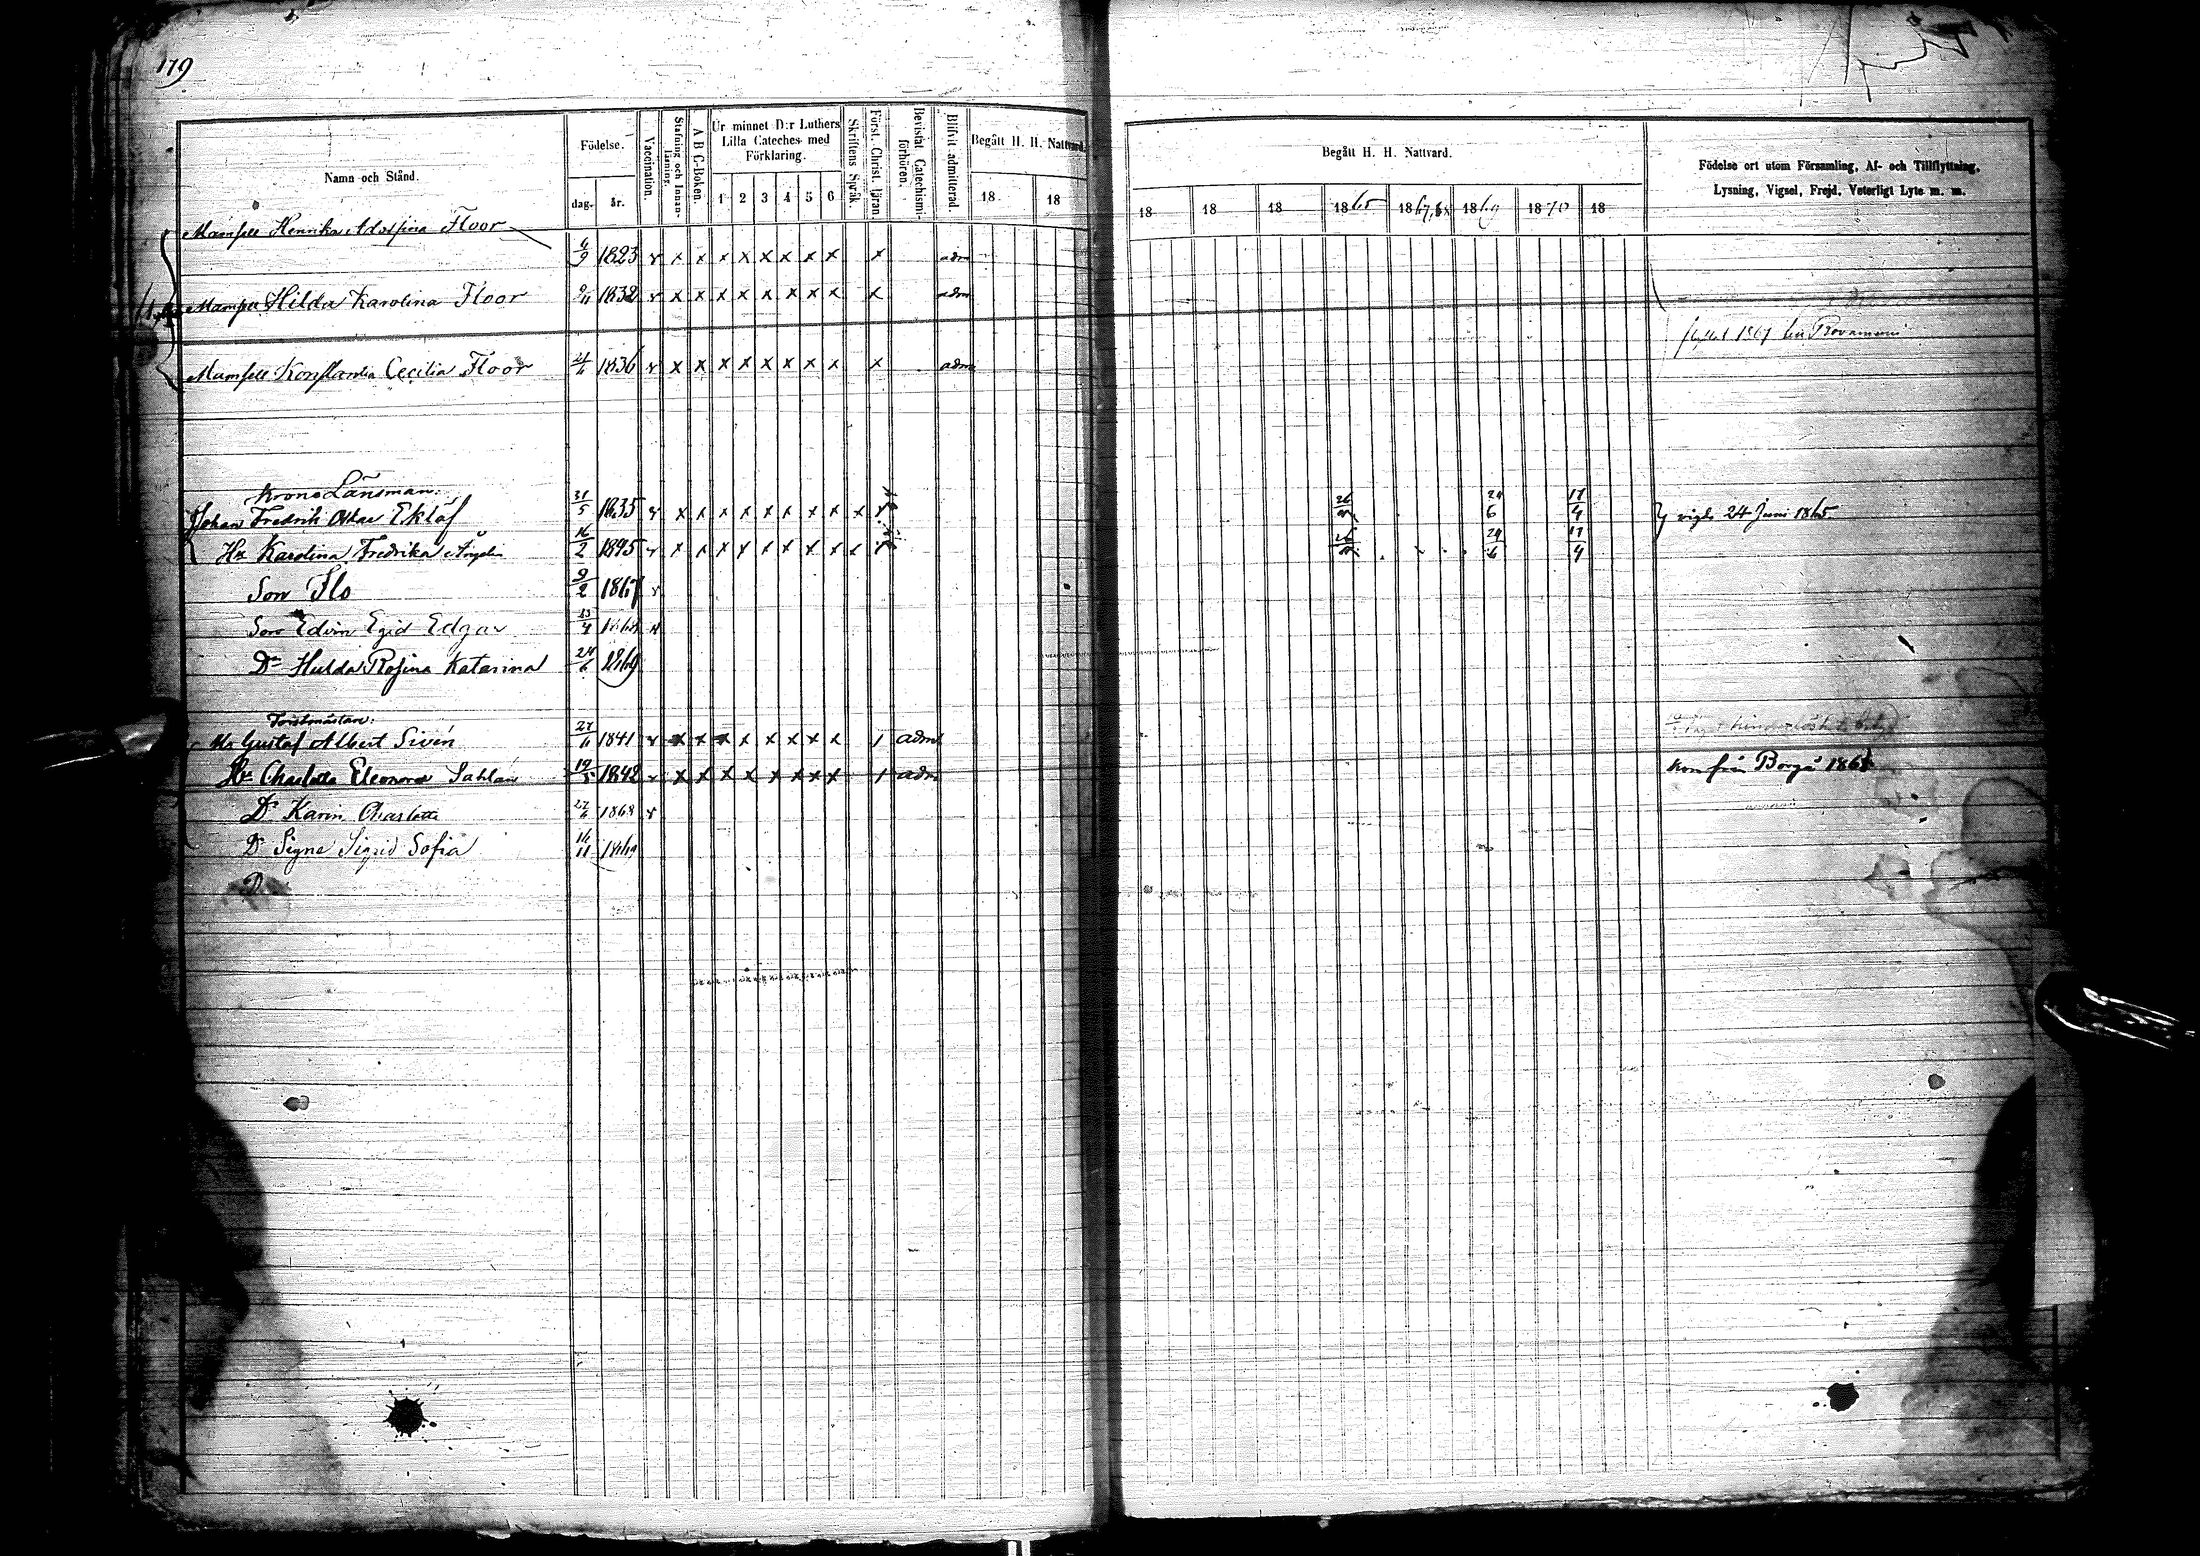 179
Namn och Stånd.
Födelse.
dag. år.
Vaccination.
Stafning och Innanläsning.
A B C-Boken.
Ur minnet D:r Luthers Lilla Cateches med Förklaring.
1 2 3 4 5 6
Skriftens Språk
Först. Christ. läran.
Bevistat Catechismiförhören.
Blifvit admitterad.
Begått H. H. Nattvard.
18 18
Begått H. H. Nattvard.
18 18 18 1865 1867,68 1869 1870 18
Födelse ort utom Församling, Af- och Tillflyttning,
Lysning, Vigsel, Frejd, Veterligt Lyte m. m.
Mamsell Henrika Adolfina Floor
6/9 1823 v x x x x x x x x x adm
Mamsell Hilda Karolina Floor 9/11 1832 v x x x x x x x x x adm
1867
Mamsell Konstantia Cecilia Floor 1836 v x x x x x x x x x adm
Krono Länsman:
Johan Fredrik Oskar Eklöf 31/5 1835 v x x x x x x x x x 24/6 17/4 vigde 24 Juni 1865
Hu Karolina Fredrika 16/2 1845 v x x x x x x x x x 24/6 17/4
Son Ilo 9/2 1867 v
Son Edvin Egid Edgar 13/4 1868 v
Dr Hulda Rosina Katarina 24/6 1869
Forstmästare:
Gustaf Albert Sivén 27/6 1841 v x x x x x x x x 1 adm
Hu Charlotta Eleonora Sahlán 19/5 1842 v x x x x x x x x 1 adm kom från Borgå 1868
Dr Karin Charlotte 27/6 1868 v
Dr Signe Sigrid Sofia 16/11 1869
D